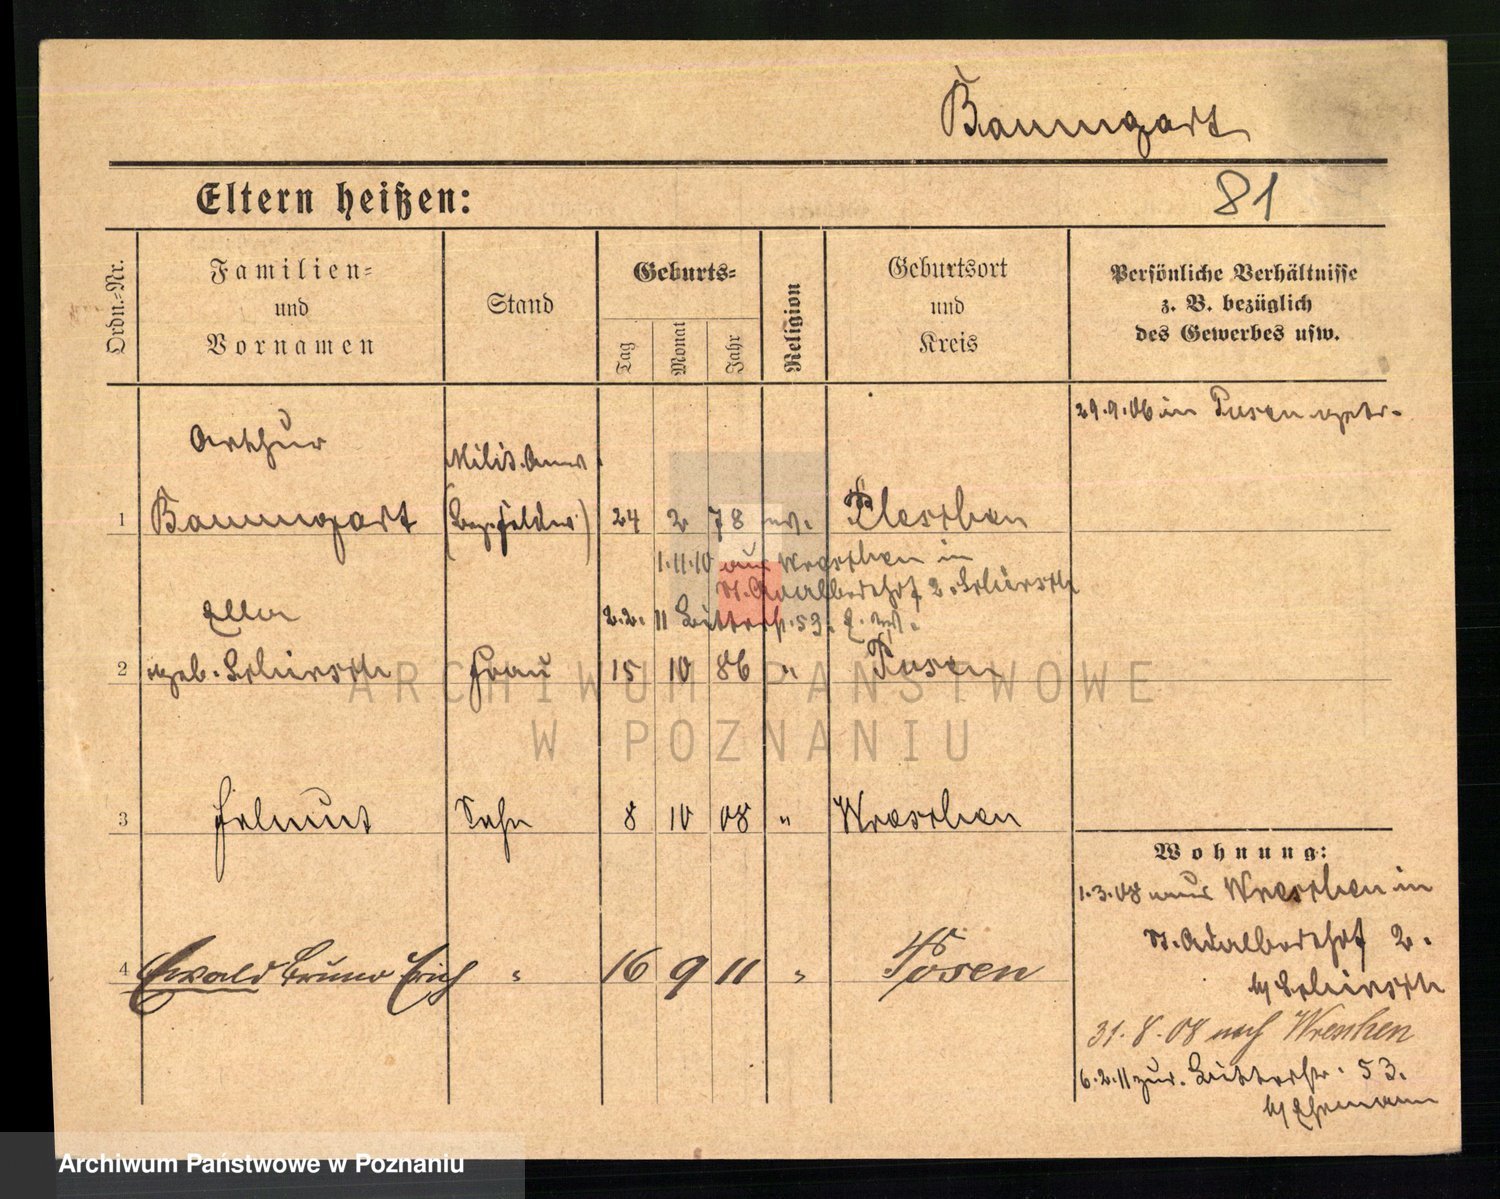 Baumgart
Eltern heißen:
81
Ordn.-Nr.
Familien-
und
Vornamen
Stand
Geburts-
Tag
Monat
Jahr
Religion
Geburtsort
und
Kreis
Persönliche Verhältnisse
z. B. bezüglich
des Gewerbes usw.
29.9.06 in Posen getr.
Arthur
Milit. Anw
1 Baumgart (Bez. Feldw.) 24 2 78 ev. Pleschen
1.11.10 aus Wreschen in
St. Adalbertstr 2.
Ella
2.2.11 Ritterstr. 53.
2 geb. Frau 15 10 86 " Posen
3 Helmut Sohn 8 10 08 " Wreschen
Wohnung:
1.3.08 aus Wreschen in
St. Adalbertstr 2.
4 Ewald Bruno Erich " 16 9 11 " Posen
b/
31.8.08 nach Wreschen
6.2.11 zur. Ritterstr. 53.
b/ Ehrmann
ARCHIWUM PAŃSTWOWE
W POZNANIU
Archiwum Państwowe w Poznaniu